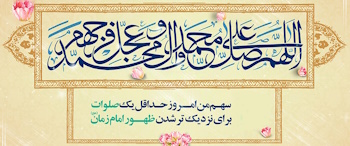 اللهم صل علی محمد و آل محمد و عجل فرجهم
سهم من امروز حداقل یک صلوات
برای نزدیک تر شدن ظهور امام زمان